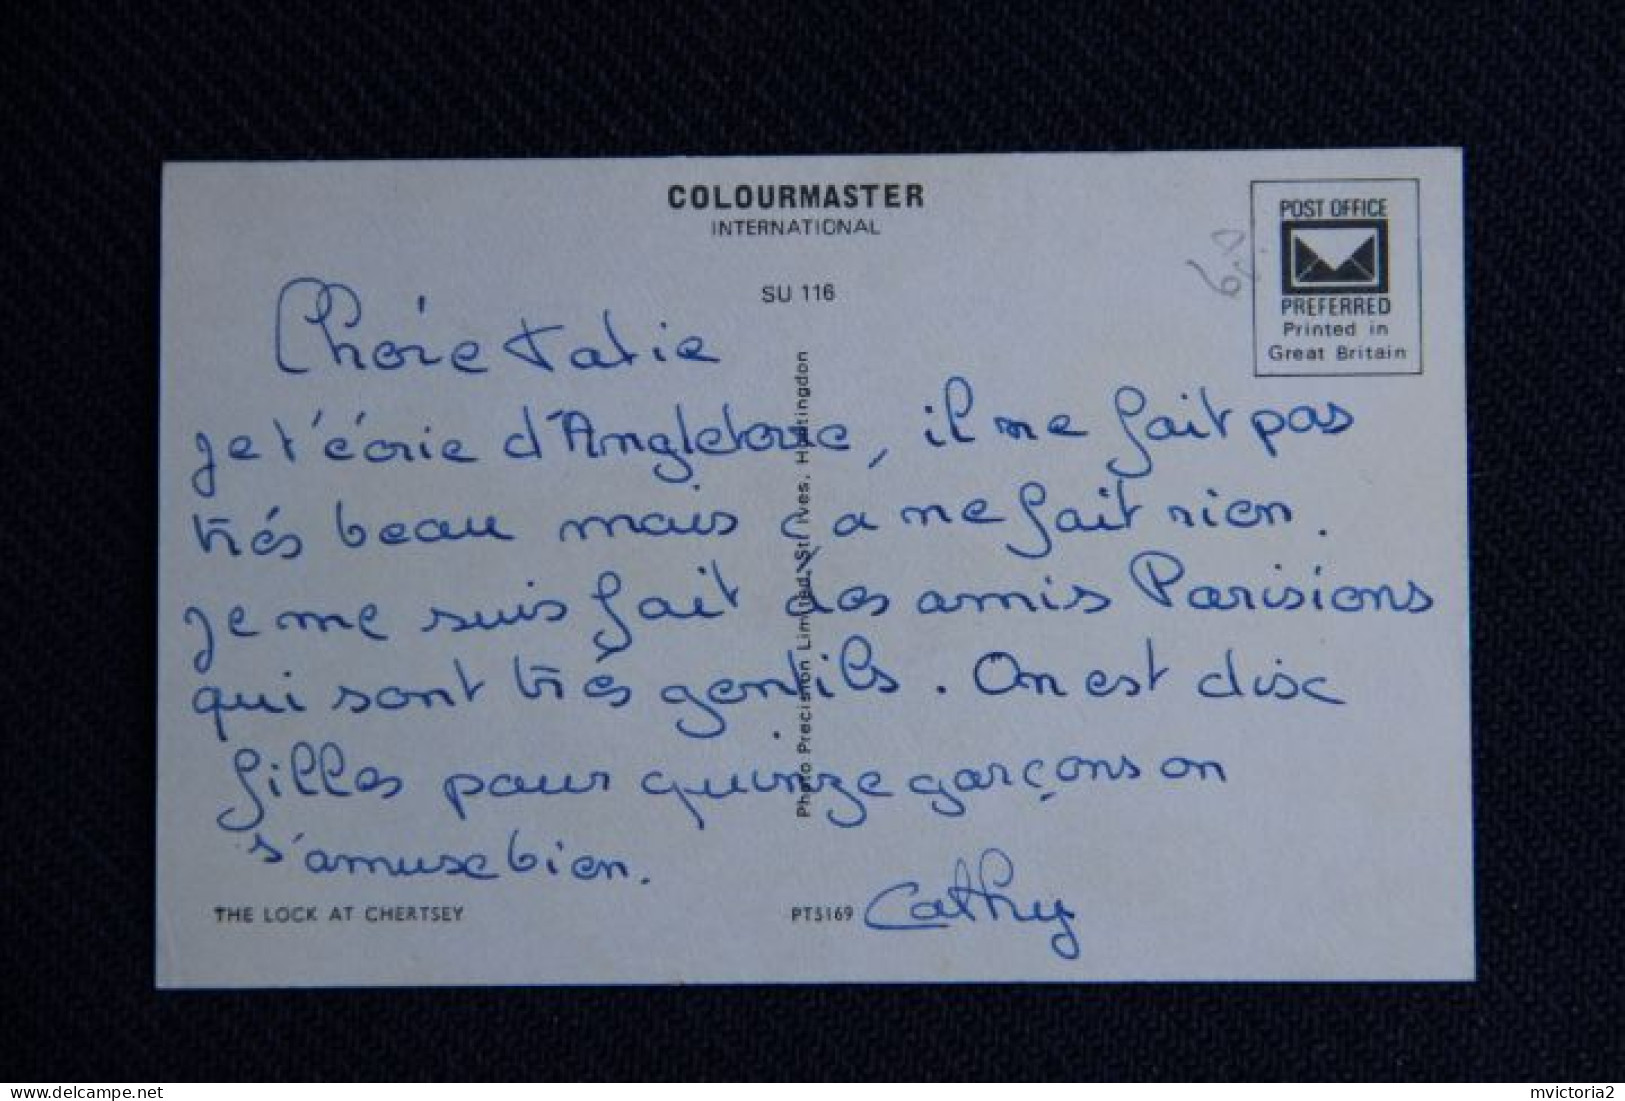 COLOURMASTER
INTERNATIONAL
SU 116
POST OFFICE
PREFERRED
Printed in
Great Britain
Chére Tatie
je t'écrie d'Angleterre, il ne fait pas
trés beau mais ça ne fait rien.
Je me suis fait des amis Parisiens
qui sont trés gentils. On est disc
filles pour quinze garçons on
s'amuse bien.
Cathy
Photo Precision Limited, St. Ives, Huntingdon
THE LOCK AT CHERTSEY
PT5169
delcampe.net
mvictoria2